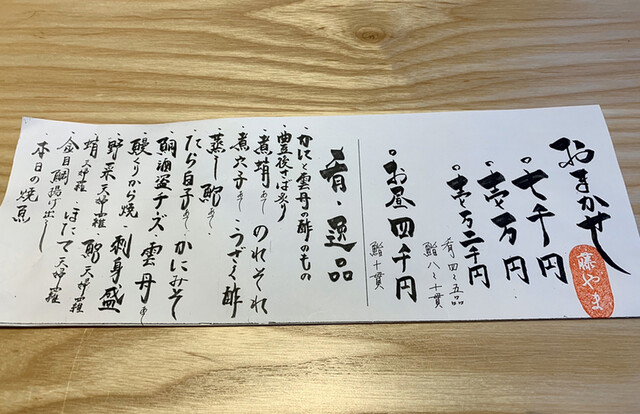 おまかせ
藤やま
・七千円
・壱万円
・壱万二千円
肴四〜五品
鮨八〜十貫
・お昼四千円
鮨十貫
肴・逸品
・かにと雲丹の酢のもの
・豊後さば炙り
・煮蛤 のれそれ
・煮穴子 うざく酢
・蒸し鮑
・たら白子 かにみそ
・酒盗チーズ 雲丹
・鰻くりから焼 刺身盛
・野菜天婦羅 鮑天婦羅
・蛤天婦羅 ほたて天婦羅
・金目鯛揚げ出し
・本日の焼魚